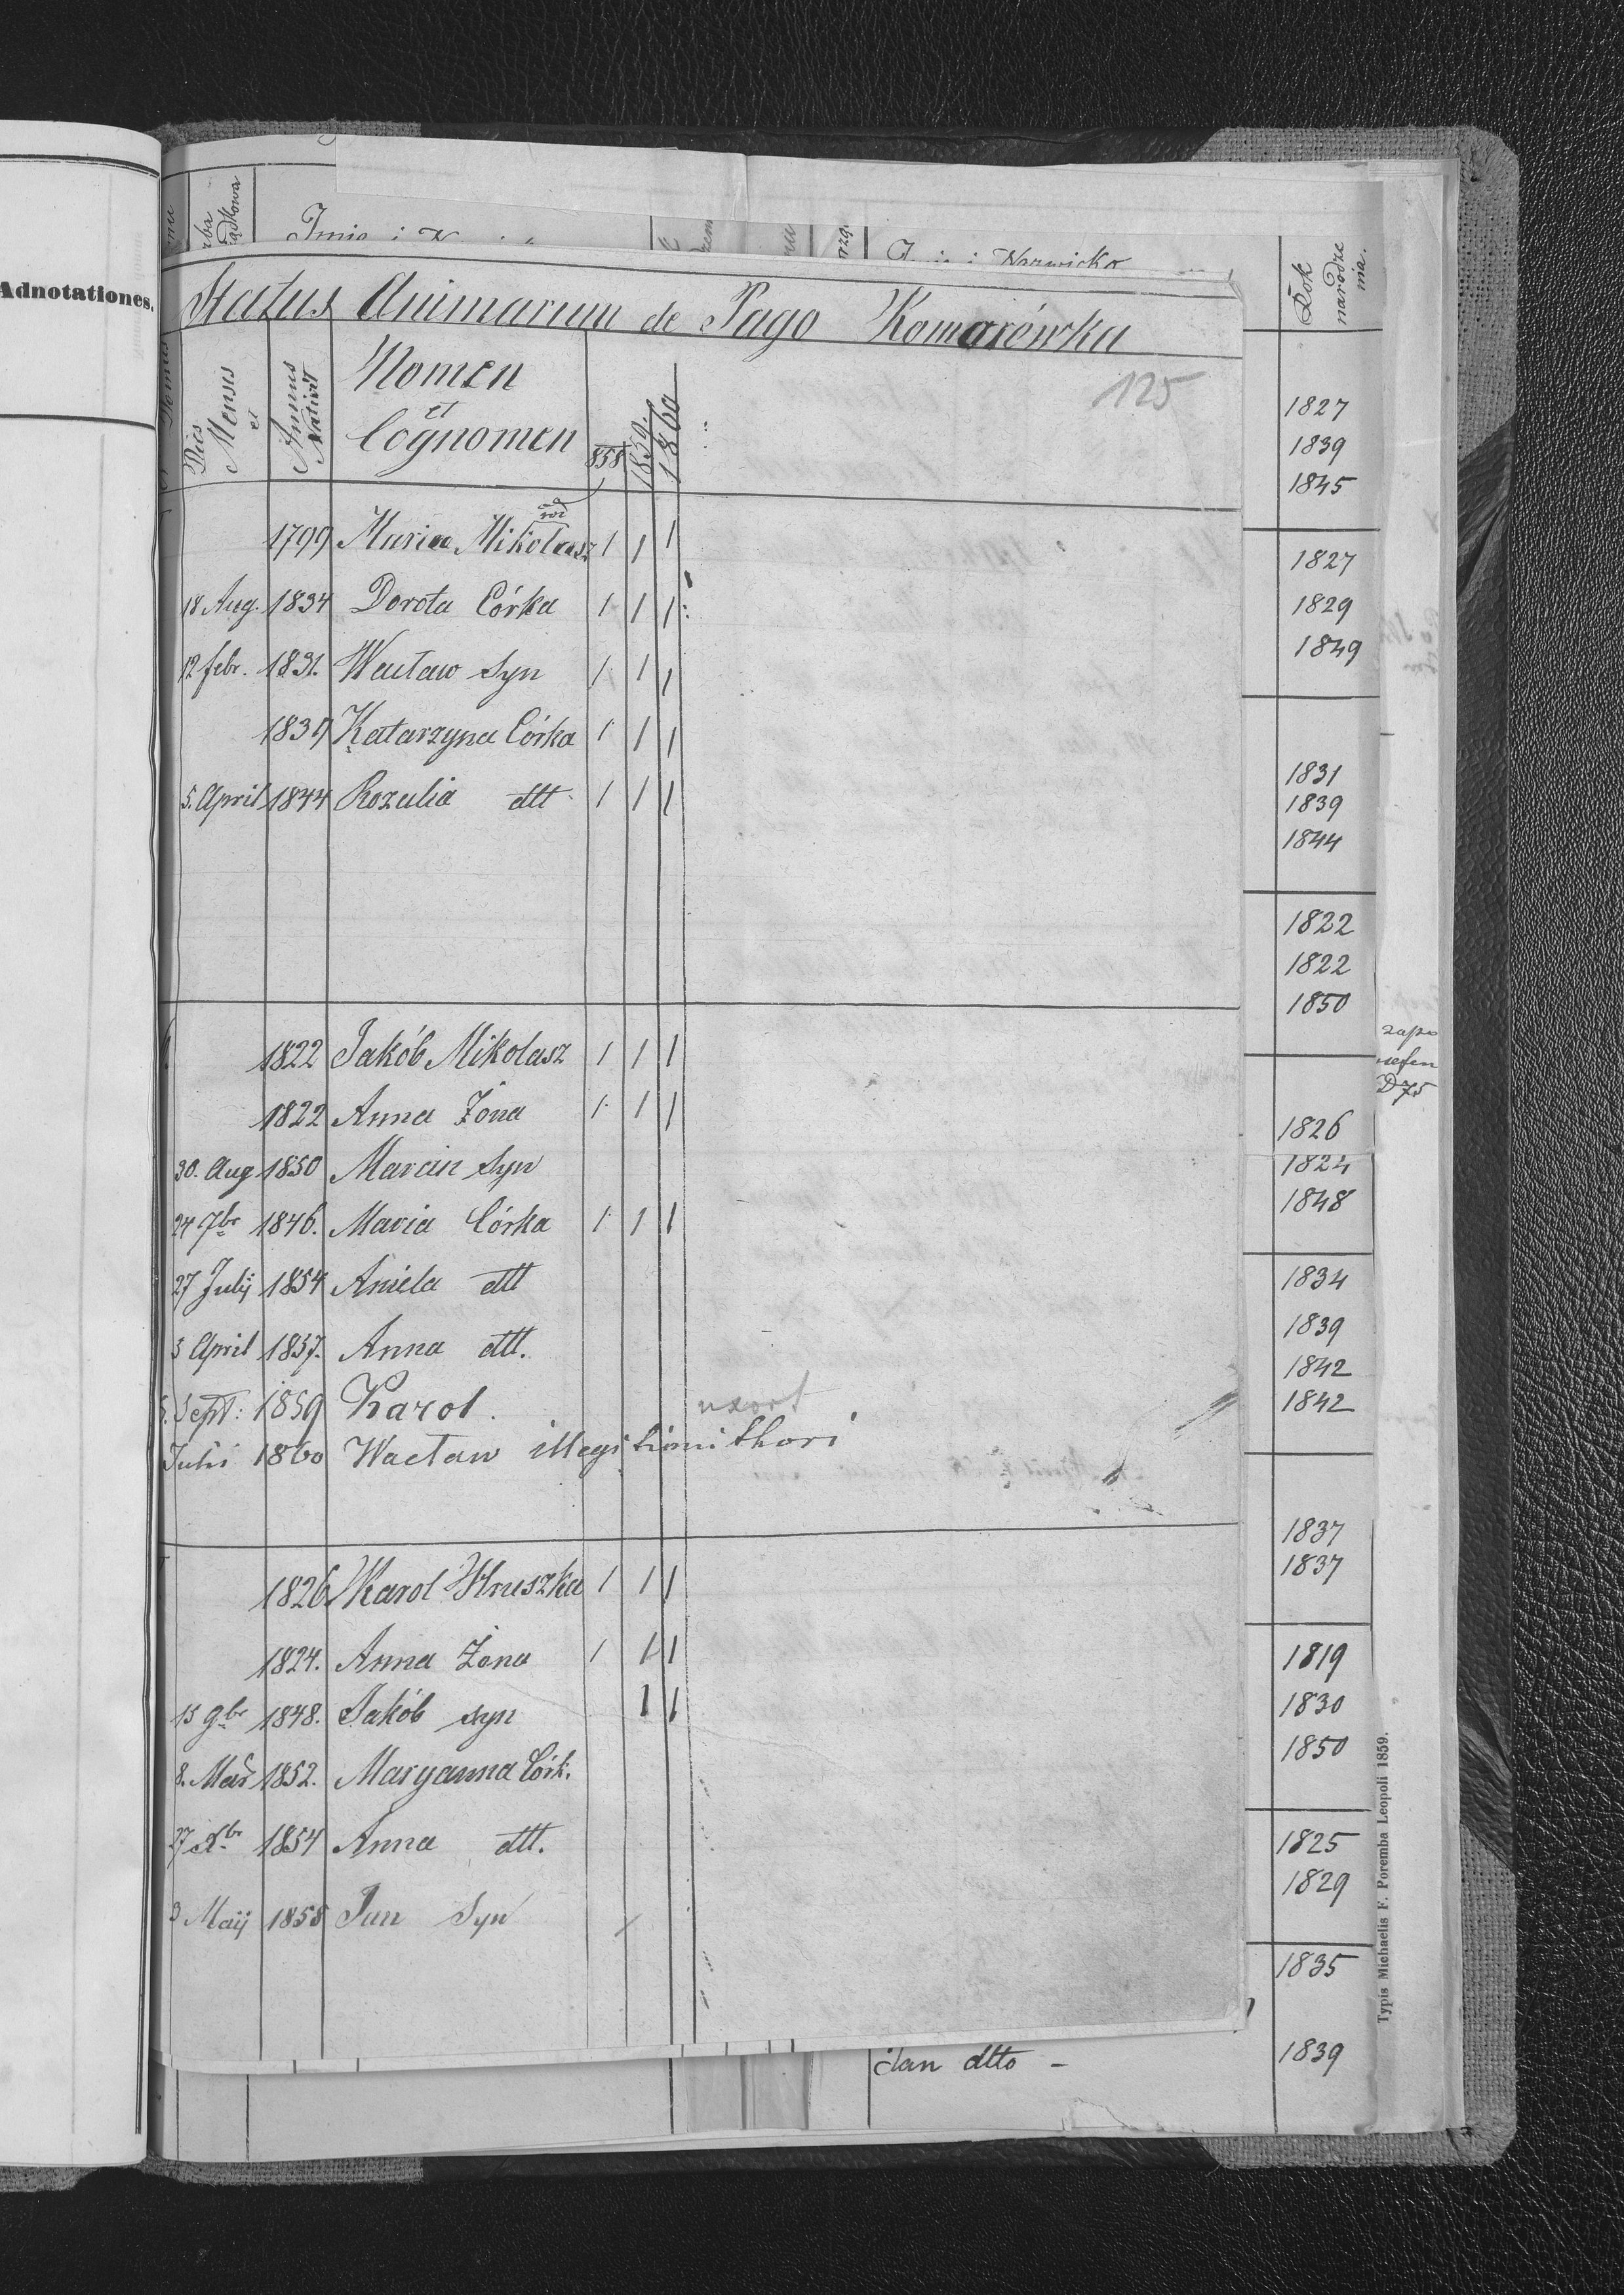 Adnotationes.
Status Animarum de Pago Komarówka
125
Dies
Mensis
et
Annus
Nativit
Nomen
et
Cognomen
858
1859.
1860
1799 Maria Mikołasz 1 1 1
18 Aug. 1834 Dorota Córka 1 1 1
12 febr. 1831. Wacław Syn 1 1 1
1837 Katarzyna Córka 1 1 1
5. April 1844 Rozalia dtt 1 1 1
1822 Jakób Mikolasz 1 1 1
1822 Anna Żona 1 1 1
30. Aug 1850 Marcin Syn
24 7br 1846. Maria Córka 1 1 1
27 Julij 1854 Aniela dtt
3 April 1857. Anna dtt.
Sept: 1859 Karol.
Julii 1860 Wacław illegitimi thori
1826 Karol Hruszka 1 1 1
1824. Anna Żona 1 1 1
15 9br 1848. Jakób syn 1 1
8. Mar 1852. Maryanna Córk.
27 Xbr 1854 Anna dtt.
3 Maij 1858 Jan Syn
Jan dtto –
Rok
narodze
nia.
1827
1839
1845
1827
1829
1849
1831
1839
1844
1822
1822
1850
1826
1824
1848
1834
1839
1842
1842
1837
1837
1819
1830
1850
1825
1829
1835
1839
D 75
Typis Michaelis F. Poremba Leopoli 1859.